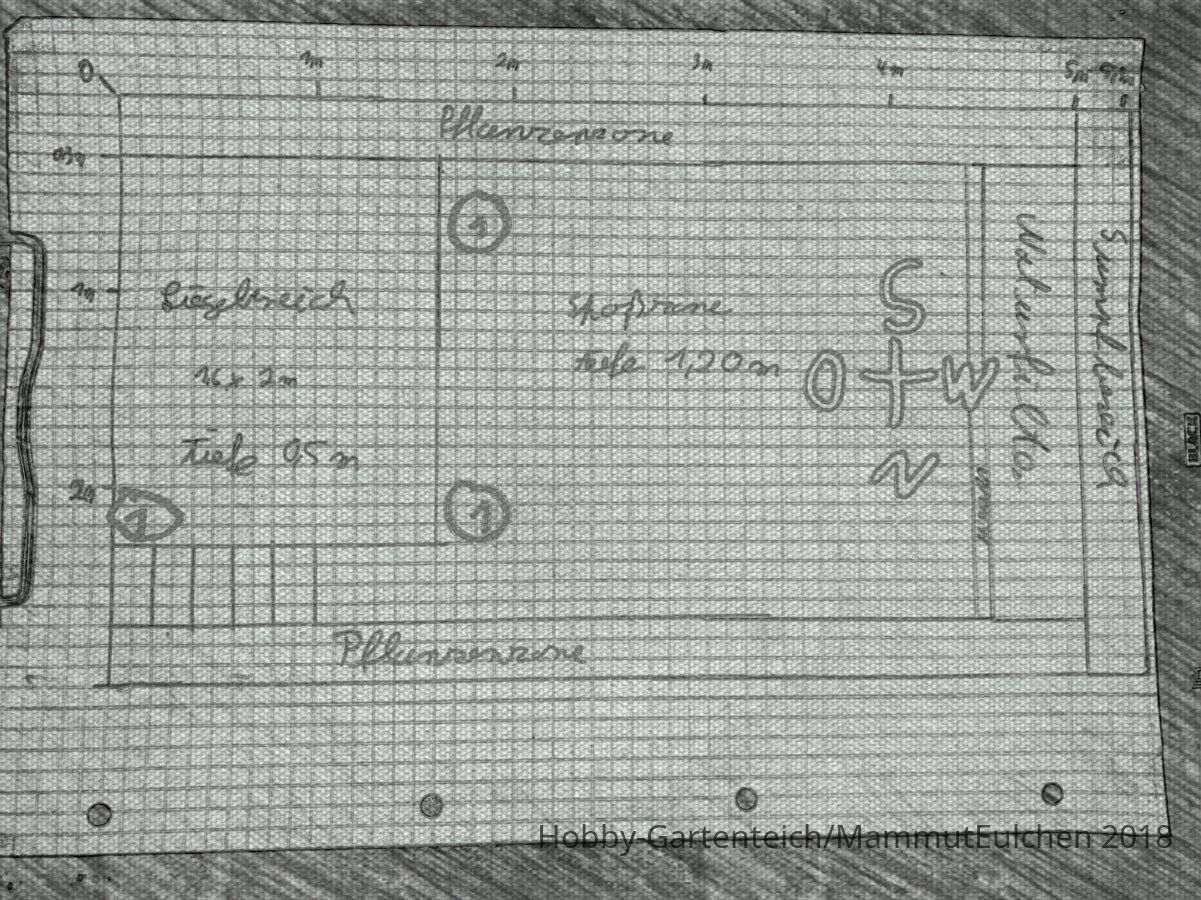 0 1m 2m 3m 4m 5m
Pflanzenzone
0,3m
1m
2m
1
1
1
Liegebreich
1,6 x 2m
tiefe 0,5 m
Spaßzone
tiefe 1,20 m
S
O W
N
Naturfilter
Sumpfbereich
Pflanzenzone
BLACK
Hobby-Gartenteich/MammutEulchen 2018